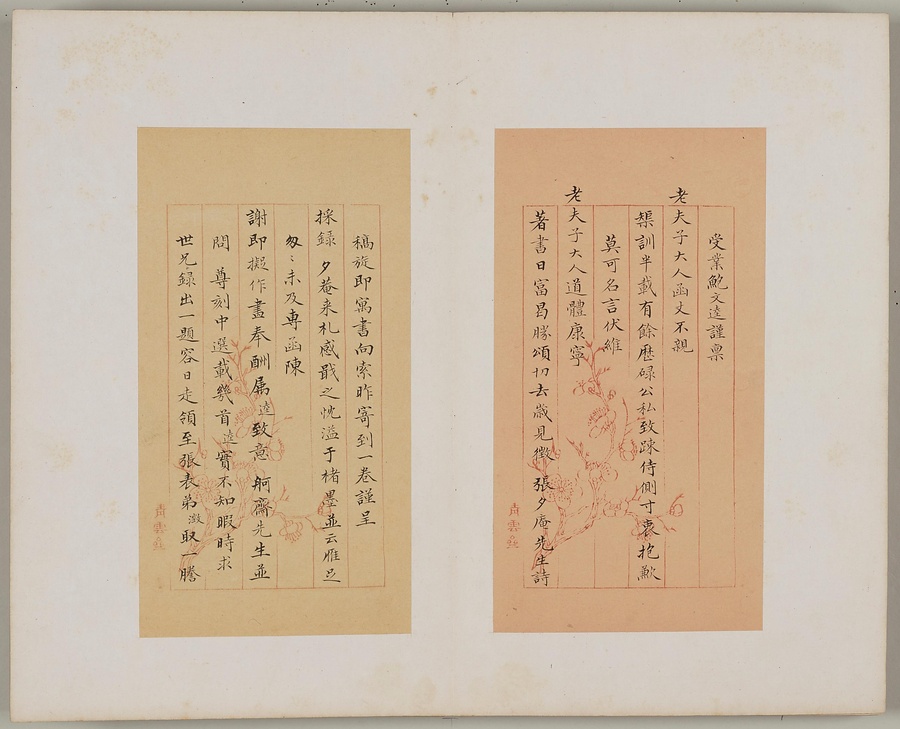 受業鮑文逵謹稟
老夫子大人函丈不親
榘訓半載有餘歷碌公私致疎侍側寸衷抱歉
莫可名言伏維
老夫子大人道體康寧
著書日富曷勝頌切去歲見徵張夕庵先生詩
稿旋即寓書向索昨寄到一卷謹呈
採錄夕菴来札感戢之忱溢于楮墨並云雁足
匆〻未及專函陳
謝即擬作畫奉酬属逵致意舸齋先生並
問尊刻中選載幾首逵實不知暇時求
世兄録出一題容日走領至張表弟澂取一謄
青雲